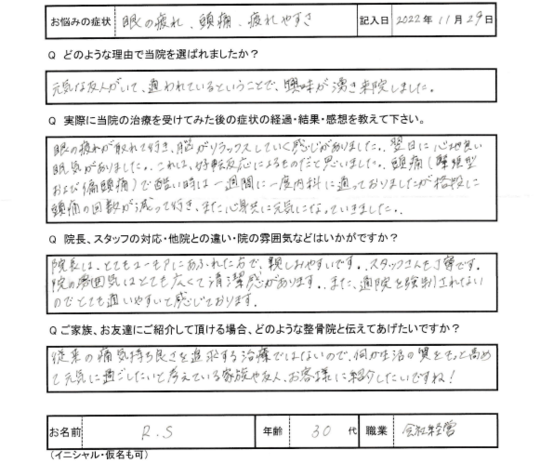 お悩みの症状 眼の疲れ、頭痛、疲れやすさ 記入日 2022年11月29日
Q どのような理由で当院を選ばれましたか？
元気な友人がいて、通われているということで、興味が湧き来院しました。
Q 実際に当院の治療を受けてみた後の症状の経過・結果・感想を教えて下さい。
眼の疲れが取れて行き、脳がリラックスしていく感じがありました。翌日に心地良い
眠気がありました。これは、好転反応によるものだと思いました。頭痛(緊張型
および偏頭痛)で酷い時は一週間に一度内科に通っておりましたが格段に
頭痛の回数が減って行き、また心身共に元気になっていきました。
Q 院長、スタッフの対応・他院との違い・院の雰囲気などはいかがですか？
院長は、とてもユーモアにあふれた方で、親しみやすいです。スタッフさんも丁寧です。
院の雰囲気はとても広くて清潔感があります。また、通院を強制されない
のでとても通いやすいと感じております。
Q ご家族、お友達にご紹介して頂ける場合、どのような整骨院と伝えてあげたいですか？
従来の痛気持ち良さを追求する治療ではないので、何か生活の質をもっと高め
て元気に過ごしたいと考えている家族や友人、お客様に紹介したいですね！
お名前 R.S 年齢 30代 職業 会社経営
(イニシャル・仮名も可)